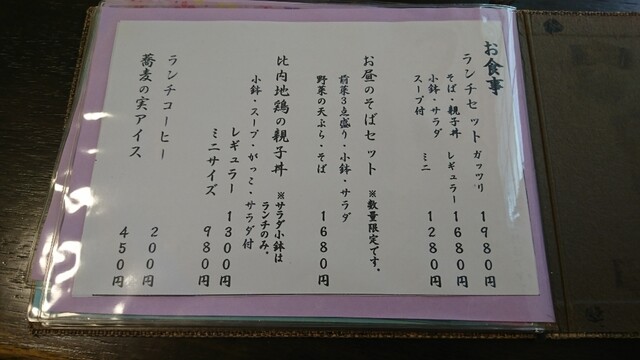 お食事
ランチセット ガッツリ 1980円
そば・親子丼 レギュラー 1680円
小鉢・サラダ ミニ 1280円
スープ付
お昼のそばセット ※数量限定です。
前菜3点盛り・小鉢・サラダ
野菜の天ぷら・そば 1680円
比内地鶏の親子丼 ※サラダ小鉢は
ランチのみ。
小鉢・スープ・がっこ・サラダ付
レギュラー 1300円
ミニサイズ 980円
ランチコーヒー 200円
蕎麦の実アイス 450円